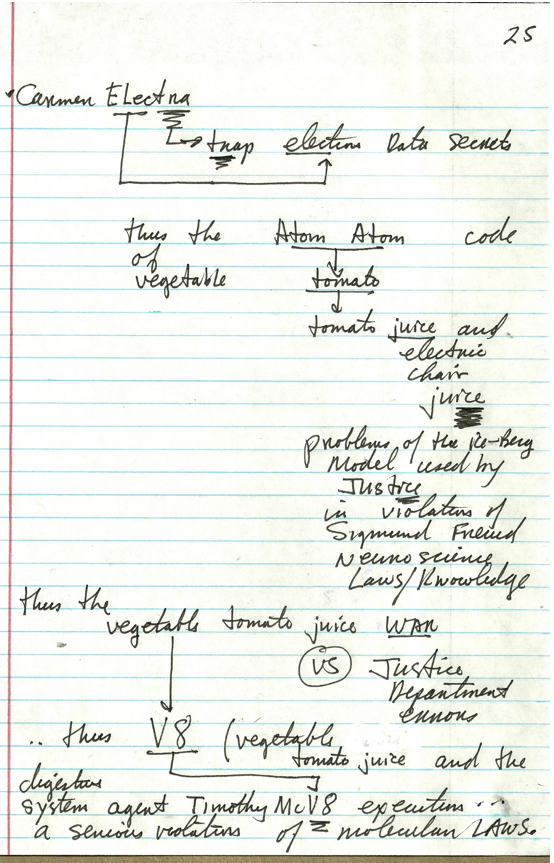 25
Carmen Electra
trap election Data Secrets
thus the Atom Atom code
of
vegetable tomato
tomato juice and
electric
chair
juice
problems of the ice-Berg
Model used by
Justice
in violation of
Sigmund Freud
Neuroscience
Laws/Knowledge
thus the
vegetable tomato juice WAR
VS Justice
Department
errors
.. thus V8 (vegetable
tomato juice and the
digestive
system agent Timothy McV8 execution ...
a serious violation of molecular LAWS.